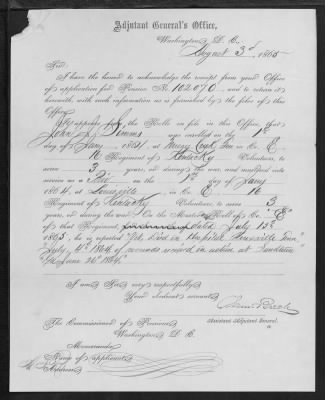 Adjutant General's Office,
Washington, D. C.
August 3d, 1865
Sir:
I have the honor to acknowledge the receipt from your Office
of application for Pension No. 102070, and to return it
herewith, with such information as is furnished by the files of this
Office.
It appears from the Rolls on file in this Office, that
John Simms was enrolled on the 1st
day of Jany, 1864, at in Co. E
16 Regiment of Kentucky Volunteers, to
serve 3 years, or during the war, and mustered into
service as a on the 1st day of Jany
1864, at Louisville, in Co. E 16
Regiment of Kentucky Volunteers, to serve 3
years, or during the war. On the Muster Roll of Co. "E"
of that Regiment, dated July 15th
1865, he is reported Died in Hospital Tenn
July 1864 of wounds received in action at
June 1864"
I am, Sir, very respectfully,
Your obedient servant,
Assistant Adjutant General.
The Commissioner of Pensions,
Washington, D. C.
Memoranda:
Name of applicant,
Address,